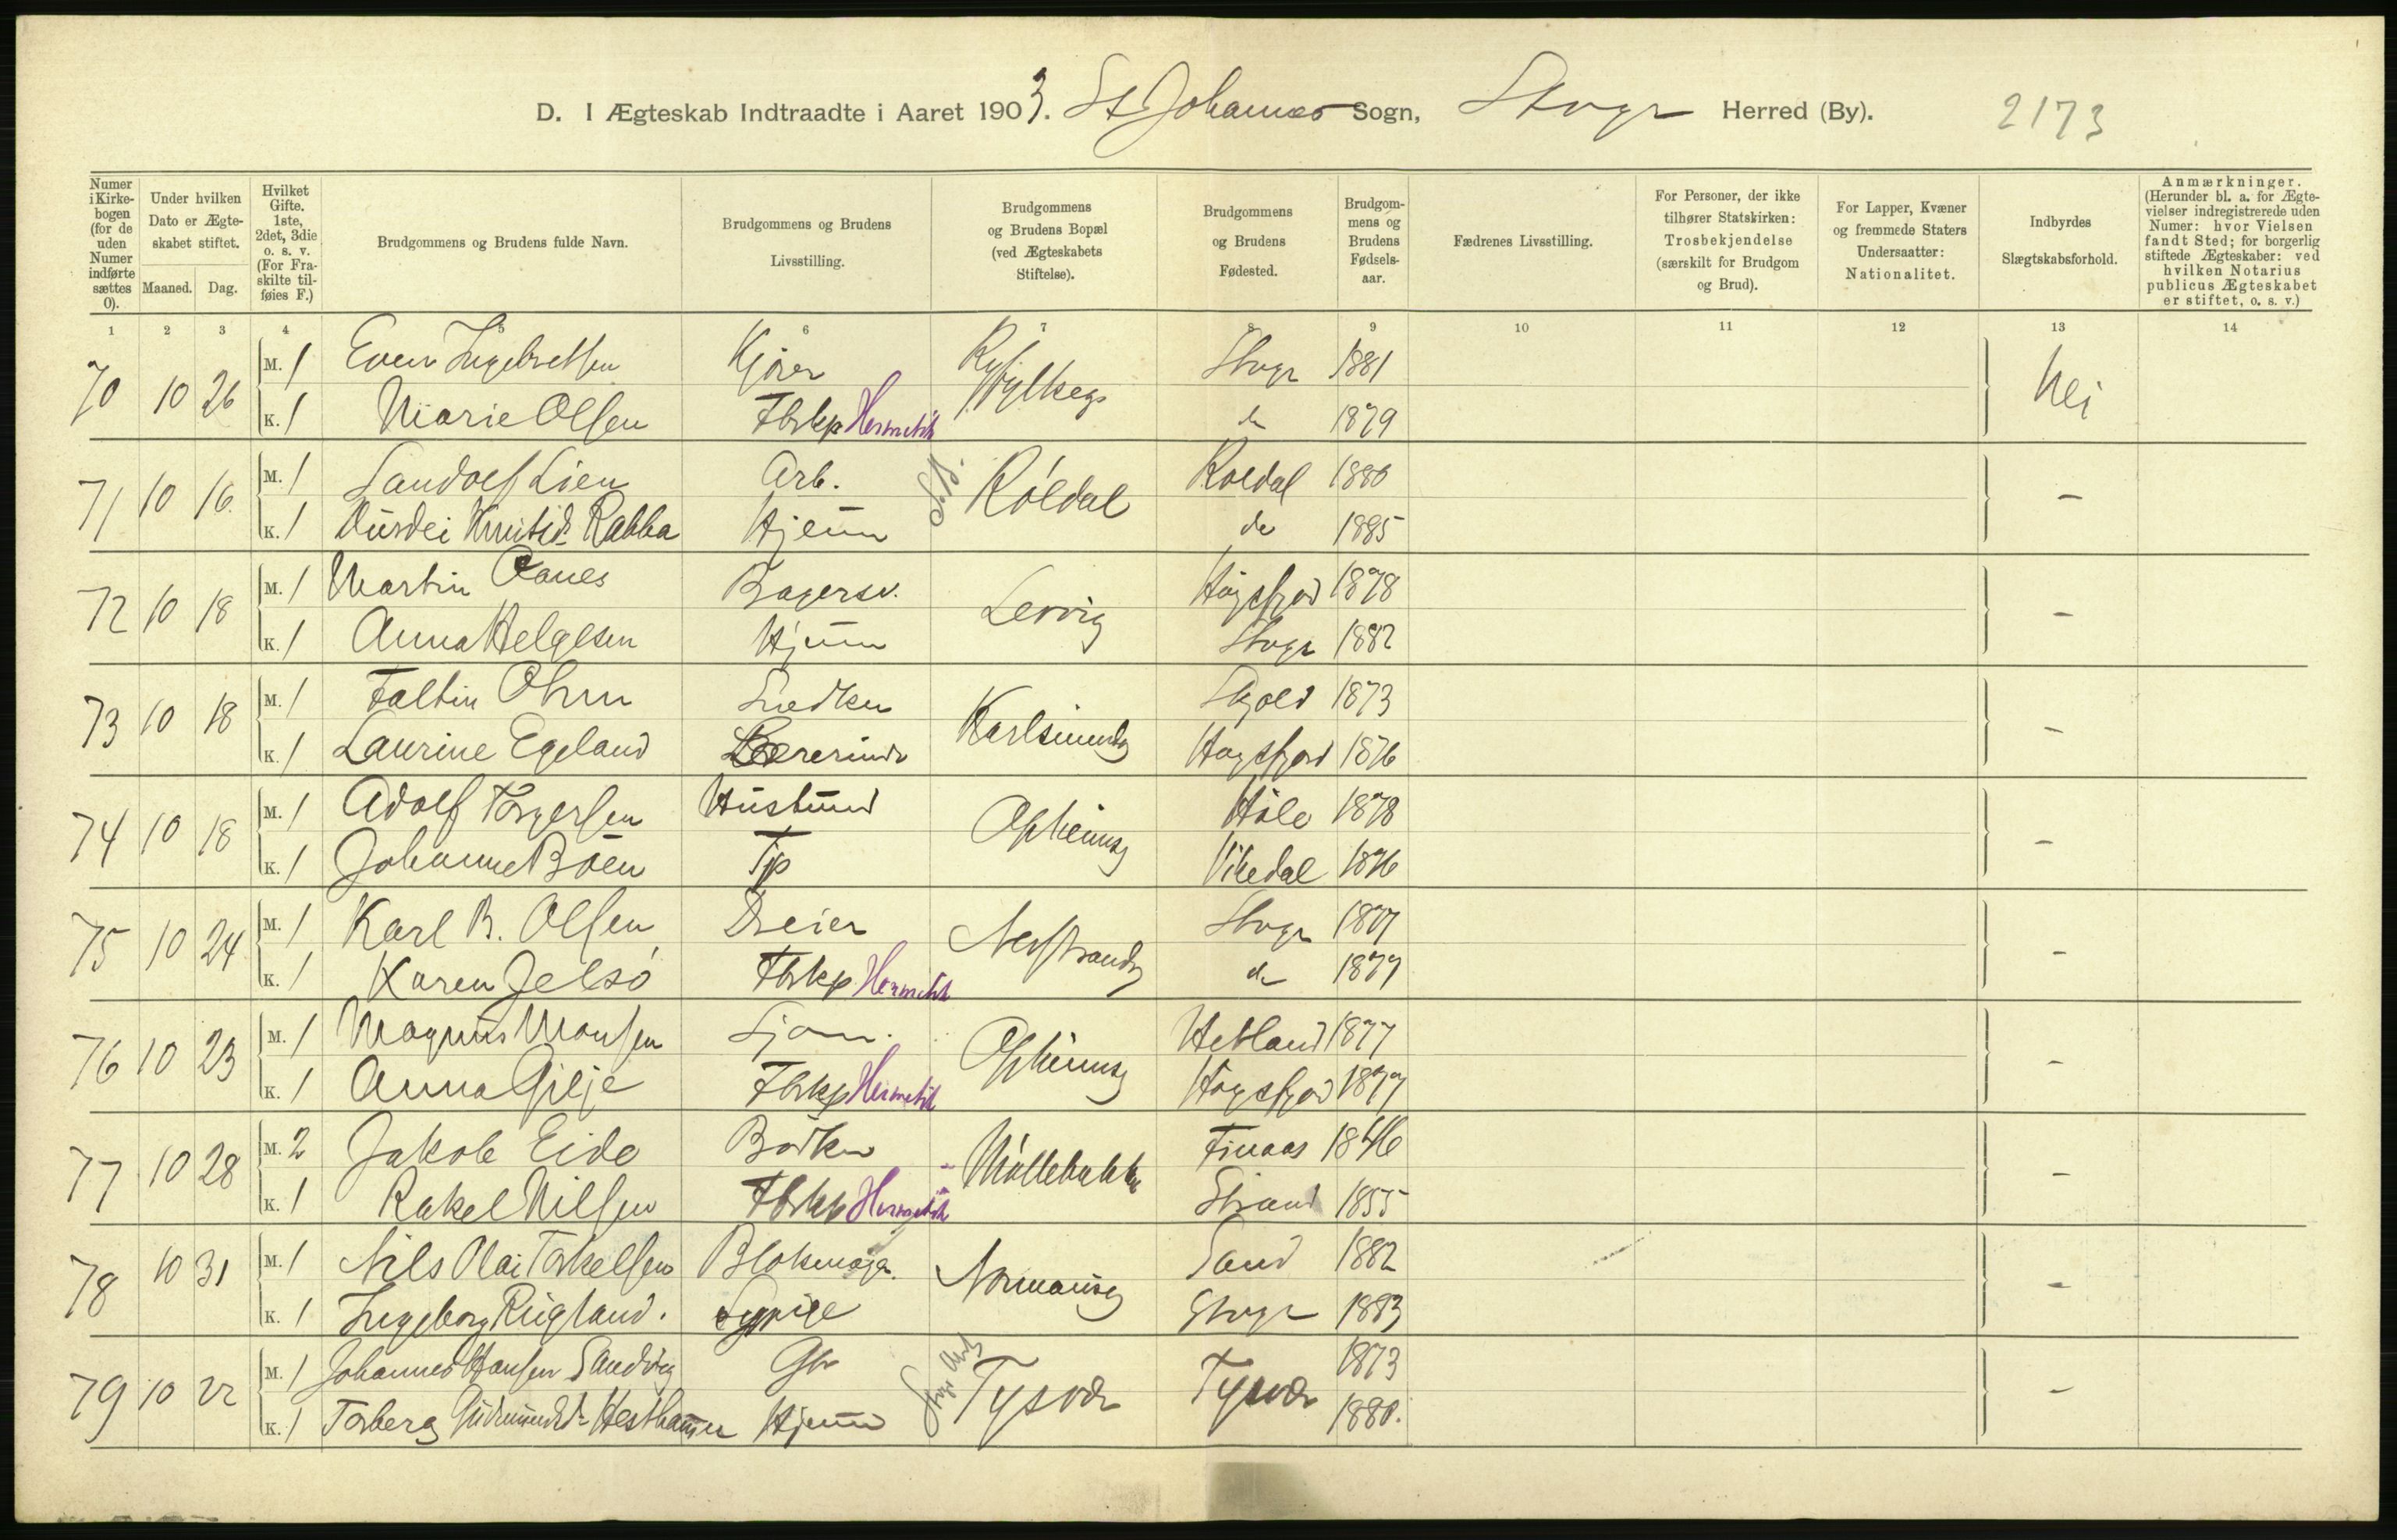 D. I Ægteskab Indtraadte i Aaret 1903. St Johannes Sogn, Stvgr Herred (By). 2173
Numer i Kirkebogen (for de uden Numer indførte sættes 0).
Under hvilken Dato er Ægteskabet stiftet.
Maaned. Dag.
Hvilket Gifte. 1ste, 2det, 3die o. s. v. (For Fraskilte tilføies F.)
Brudgommens og Brudens fulde Navn.
Brudgommens og Brudens Livsstilling.
Brudgommens og Brudens Bopæl (ved Ægteskabets Stiftelse).
Brudgommens og Brudens Fødested.
Brudgommens og Brudens Fødselsaar.
Fædrenes Livsstilling.
For Personer, der ikke tilhører Statskirken: Trosbekjendelse (særskilt for Brudgom og Brud).
For Lapper, Kvæner og fremmede Staters Undersaatter: Nationalitet.
Indbyrdes Slægtskabsforhold.
Anmærkninger. (Herunder bl. a. for Ægtevielser indregistrerede uden Numer: hvor Vielsen fandt Sted; for borgerlig stiftede Ægteskaber: ved hvilken Notarius publicus Ægteskabet er stiftet, o. s. v.)
1 2 3 4 5 6 7 8 9 10 11 12 13 14
70 10 26 M. 1 Even Ingebretsen Kjører Ryfylkeg. Stvgr 1881 Nei
K. 1 Marie Olsen Fbrkp Hermetik do 1879
71 10 16. M. 1 Sandolf Lien Arb. Röldal Roldal 1880 -
K. 1 Knutsd. Rabba Hjemme do 1885
72 10 18 M. 1 Martin Oanes Bagersv. Lervig Høgsfjord 1878 -
K. 1 Anna Helgesen Hjemme Stvgr 1882
73 10 18 M. 1 Faltin Ohm Snedker Karlsmindeg Skjold 1873 -
K. 1 Laurine Egeland Lærerinde Høgsfjord 1876
74 10 18 M. 1 Adolf Torgersen Opheimsg Høle 1878 -
K. 1 Johanne Böen Tjp Vikedal 1876
75 10 24 M. 1 Karl B. Olsen Dreier Nerstrandsg Stvgr 1877 -
K. 1 Karen Jelsö Fbrkp. Hermetik do 1877
76 10 23 M. 1 Magnus Monsen Sjom. Opheimsg Hetland 1877 -
K. 1 Anna Gilje Fbrkp Hermetik Høgsfjord 1877
77 10 28 M. 2 Jakob Eide Bödker Möllebakke Finaas 1846 -
K. 1 Rakel Nilsen Fbrkp Hermetik Strand 1855
78 10 31 M. 1 Nils Olai Torkelsen Blokmager. Normansg Sand 1882 -
K. 1 Ingeborg Rugland. Sypige Stvgr 1883
79 10 22 M. 1 Johannes Hansen Sandvig Gbr Tysvær Tysvær 1873 -
K. 1 Torberg Gudmundsd. Hesthammer Hjemme 1880.